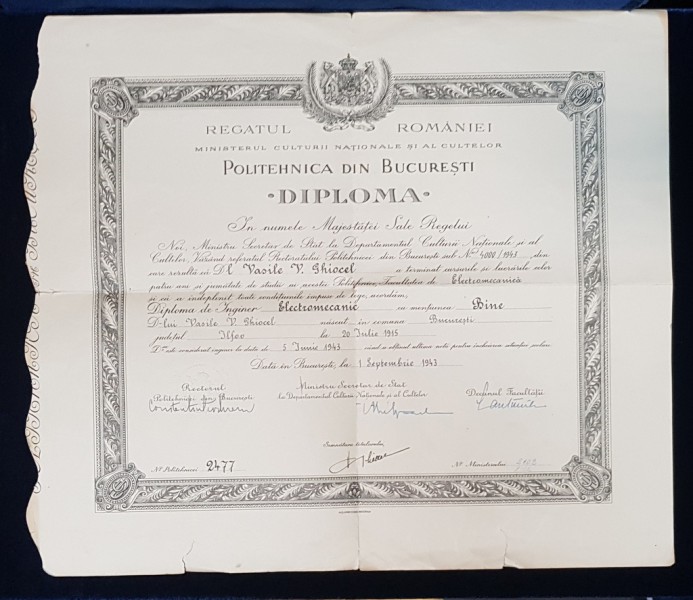 REGATUL ROMÂNIEI
MINISTERUL CULTURII NAȚIONALE ȘI AL CULTELOR
POLITEHNICA DIN BUCUREȘTI
·DIPLOMA·
In numele Majestăței Sale Regelui
Noi, Ministru Secretar de Stat la Departamentul Culturii Naționale și al
Cultelor, Văzând referatul Rectoratului Politehnicei din București sub No. 4000/1943, din
care rezultă că D-l Vasile V. Ghiocel a terminat cursurile și lucrările celor
patru ani și jumătate de studii ai acestei Politehnice, Facultatea de Electromecanică
și că a îndeplinit toate condițiunile impuse de lege, acordăm,
Diploma de Inginer Electromecanic cu mențiunea Bine
D-lui Vasile V. Ghiocel născut în comuna București
județul Ilfov la 20 Iulie 1915
D-sa este considerat inginer la data de 5 Iunie 1943 când a obținut ultima notă pentru încheierea situației școlare
Dată în București, la 1 Septembrie 1943
Rectorul
Politehnicei din București
Ministru Secretar de Stat
la Departamentul Culturii Naționale și al Cultelor
Decanul Facultății
Semnătura titularului,
No. Politehnicei 2477
No. Ministerului